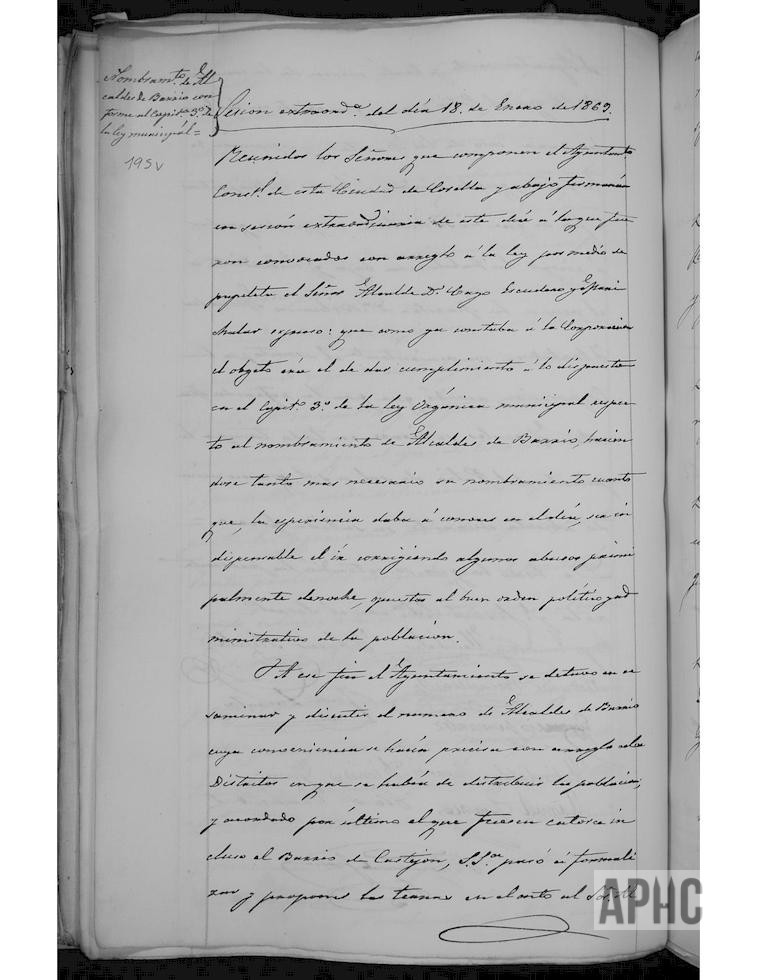 Nombramto. de Al
caldes de Barrio con
forme al Capit. 3º. de
la ley municipal=
195v
Sesion extraorda. del día 18. de Enero de 1869.
Reunidos los Señores que componen el Ayuntamto.
Constl. de esta Ciudad de Corella y abajo firmarán
en sesión extraordinaria de este día á la que fue
ron convocados con arreglo á la ley por medio de
papeleta el Señor Alcalde Dn. Escudero y
expuso: que como ya constaba á la Corporacion
el objeto era el de dar cumplimiento á lo dispuesto
en el Capit. 3º. de la ley Orgánica municipal respec
to al nombramiento de Alcaldes de Barrio, hacien
dose tanto mas necesario su nombramiento cuanto
que, la esperiencia daba á conocer en el día, ser in
dispensable el ir corrigiendo algunos abusos princi
palmente de noche, opuestos al buen orden político y ad
ministrativo de la poblacion.
A ese fin el Ayuntamiento se detuvo en ec
saminar y discutir el numero de Alcaldes de Barrio
cuya conveniencia se hacía precisa con arreglo a los
Distritos en que se había de distribuir la poblacion,
y acordado por último el que fuesen catorce in
cluso el Barrio de Castejon, S.Sria. pasó á formali
zar y proponer las ternas en el acto al Sor. Al
APHC